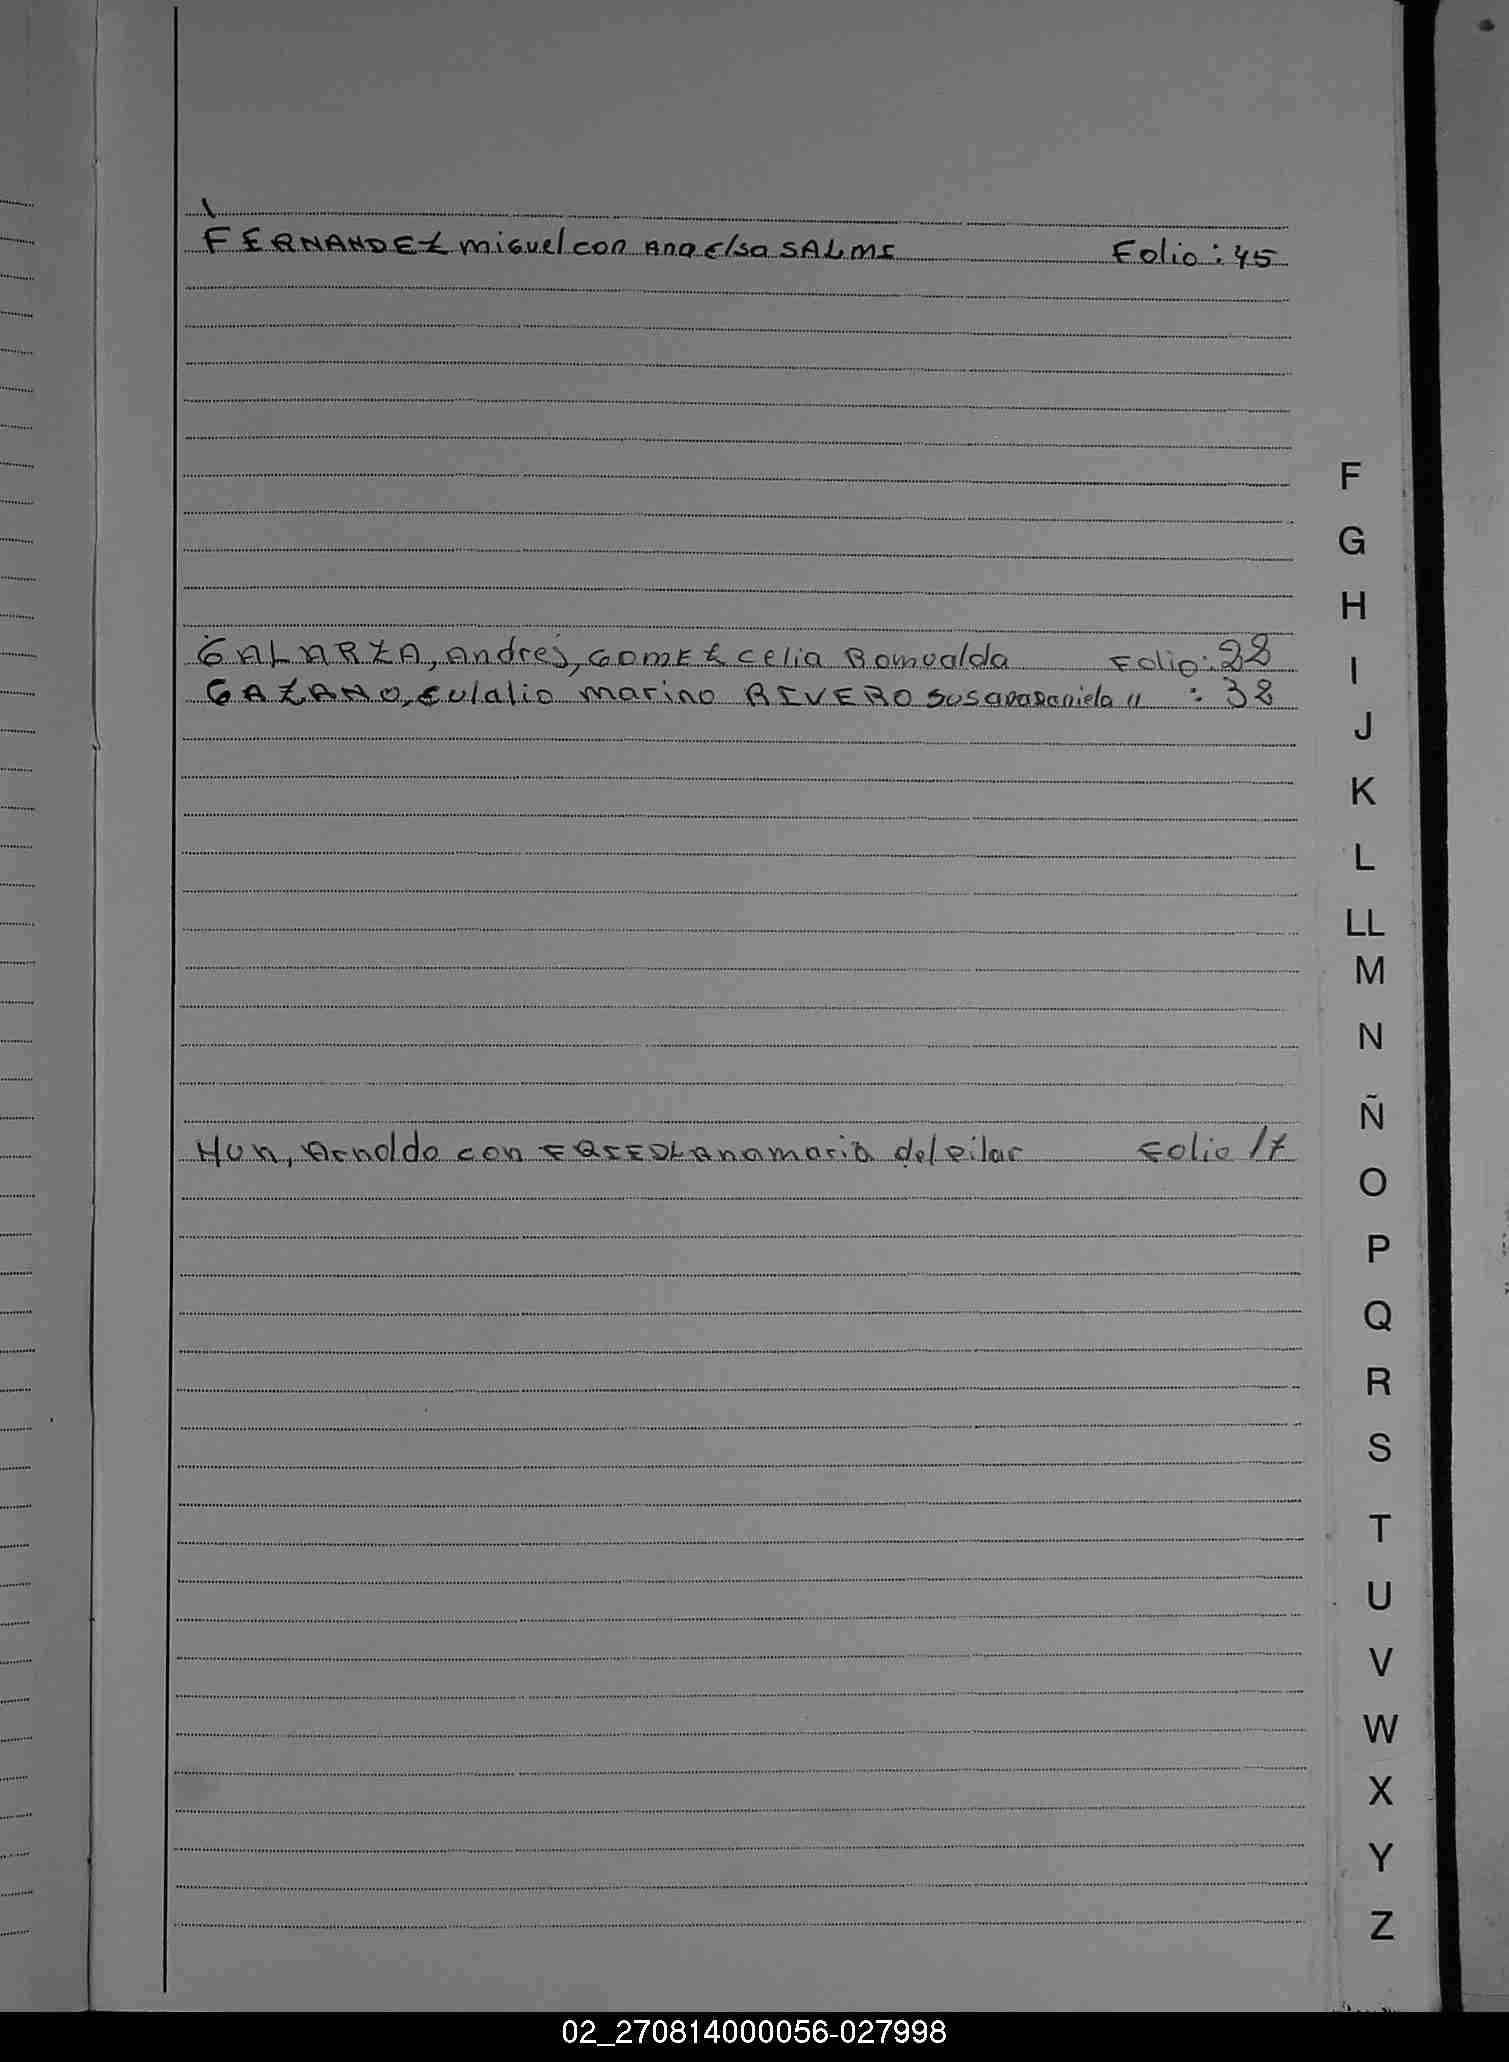 FERNANDEZ miguel con Ana elsa SALMI Folio: 45
F
G
H
GALARZA, Andres, GOMEZ Celia Romualda Folio: 28
I
GAZANO, Eulalio marino RIVERO Susana Daniela " : 38
J
K
L
LL
M
N
Ñ
Hun, Arnoldo con ana maria del pilar Folio 17
O
P
Q
R
S
T
U
V
W
X
Y
Z
02_270814000056-027998